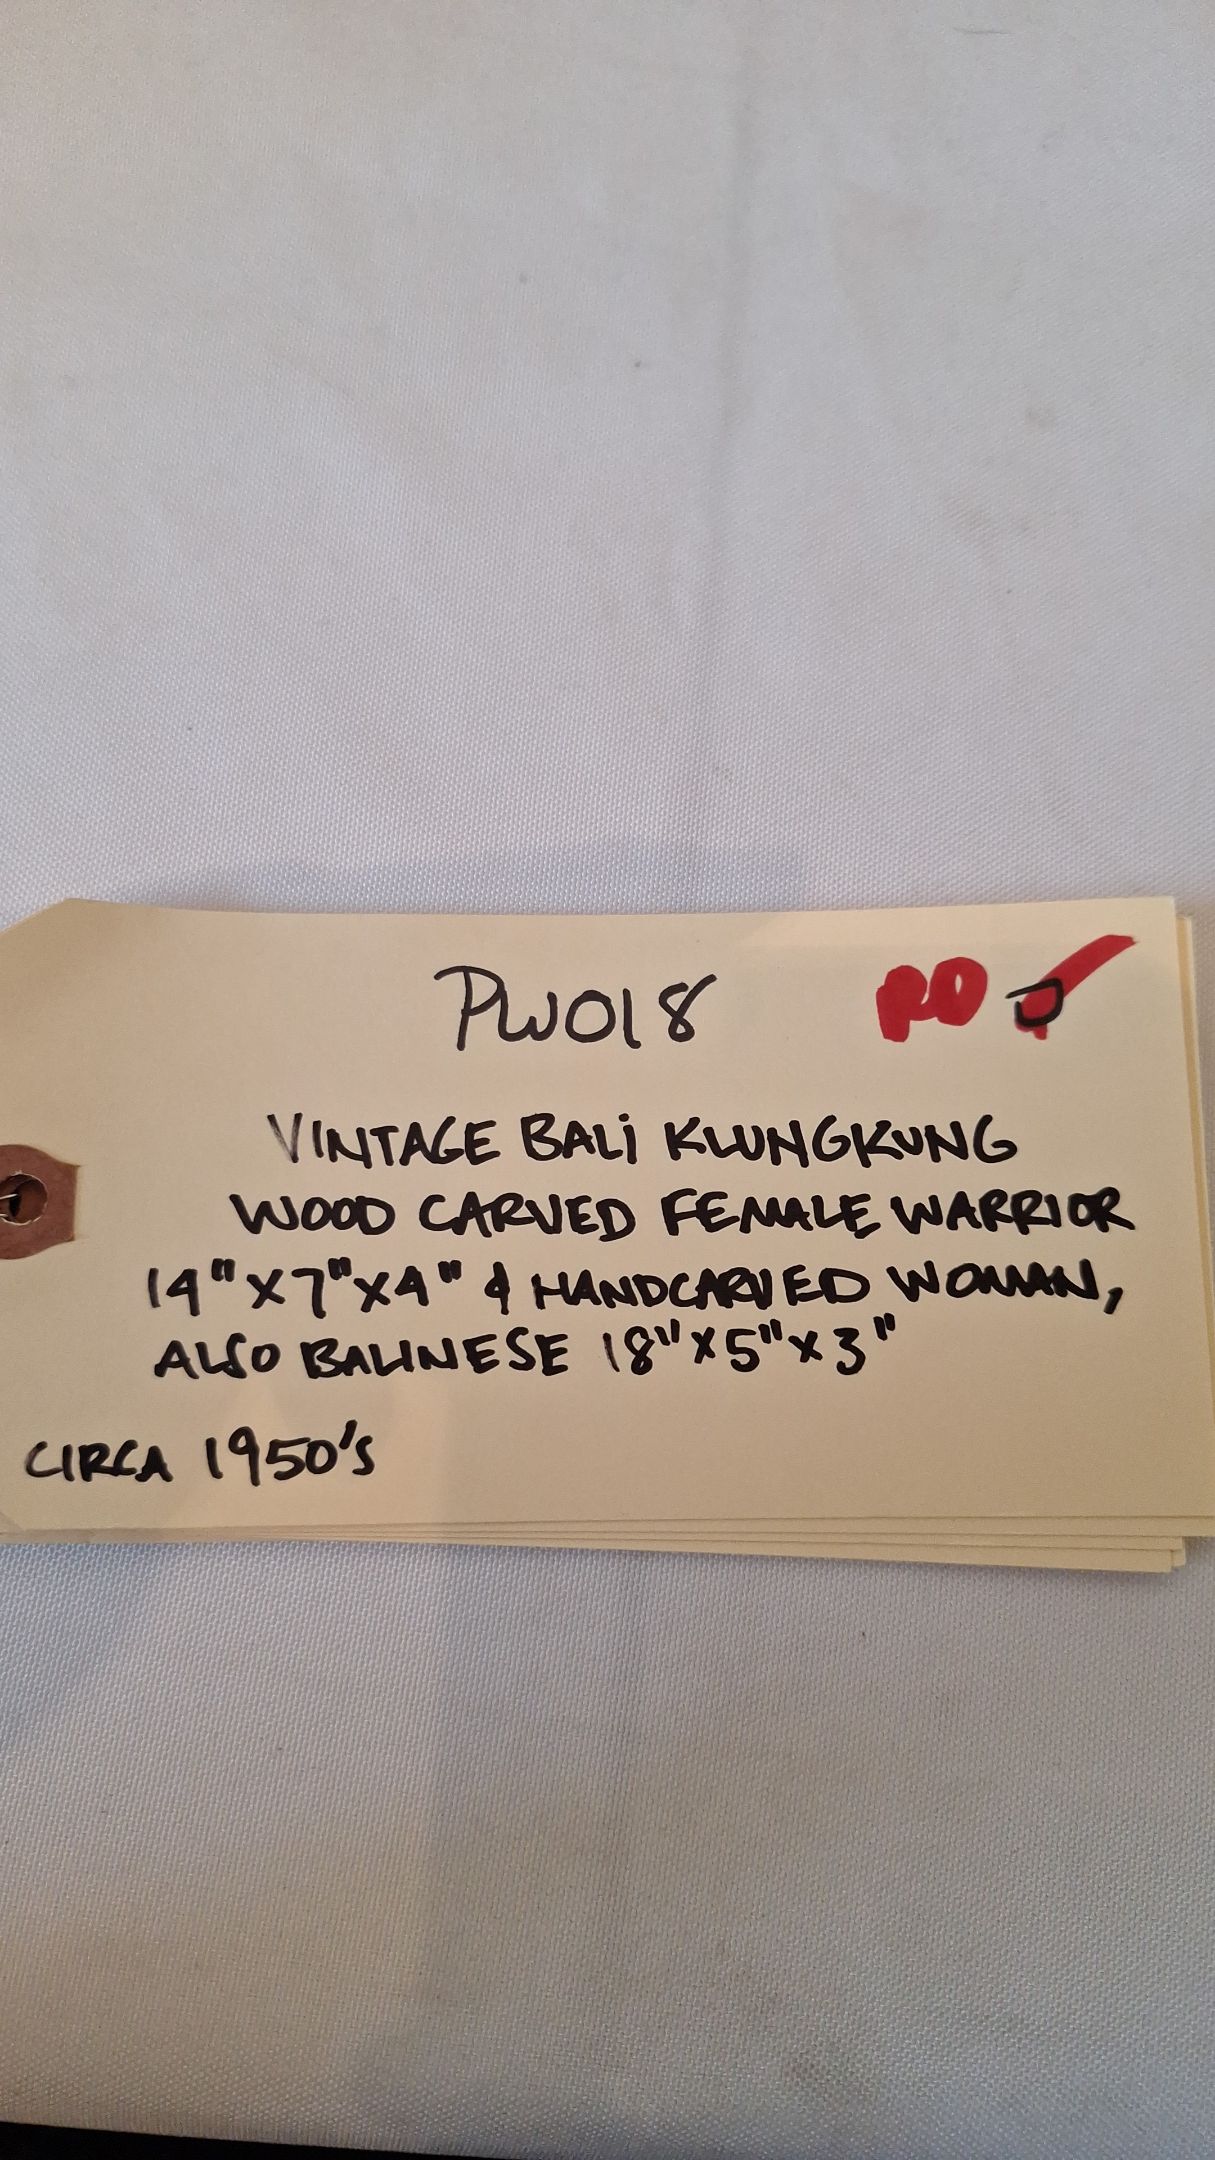 PW018 RD
VINTAGE BALI KLUNGKUNG
WOOD CARVED FEMALE WARRIOR
14"X7"X4" & HANDCARVED WOMAN,
ALSO BALINESE 18"X5"X3"
CIRCA 1950'S